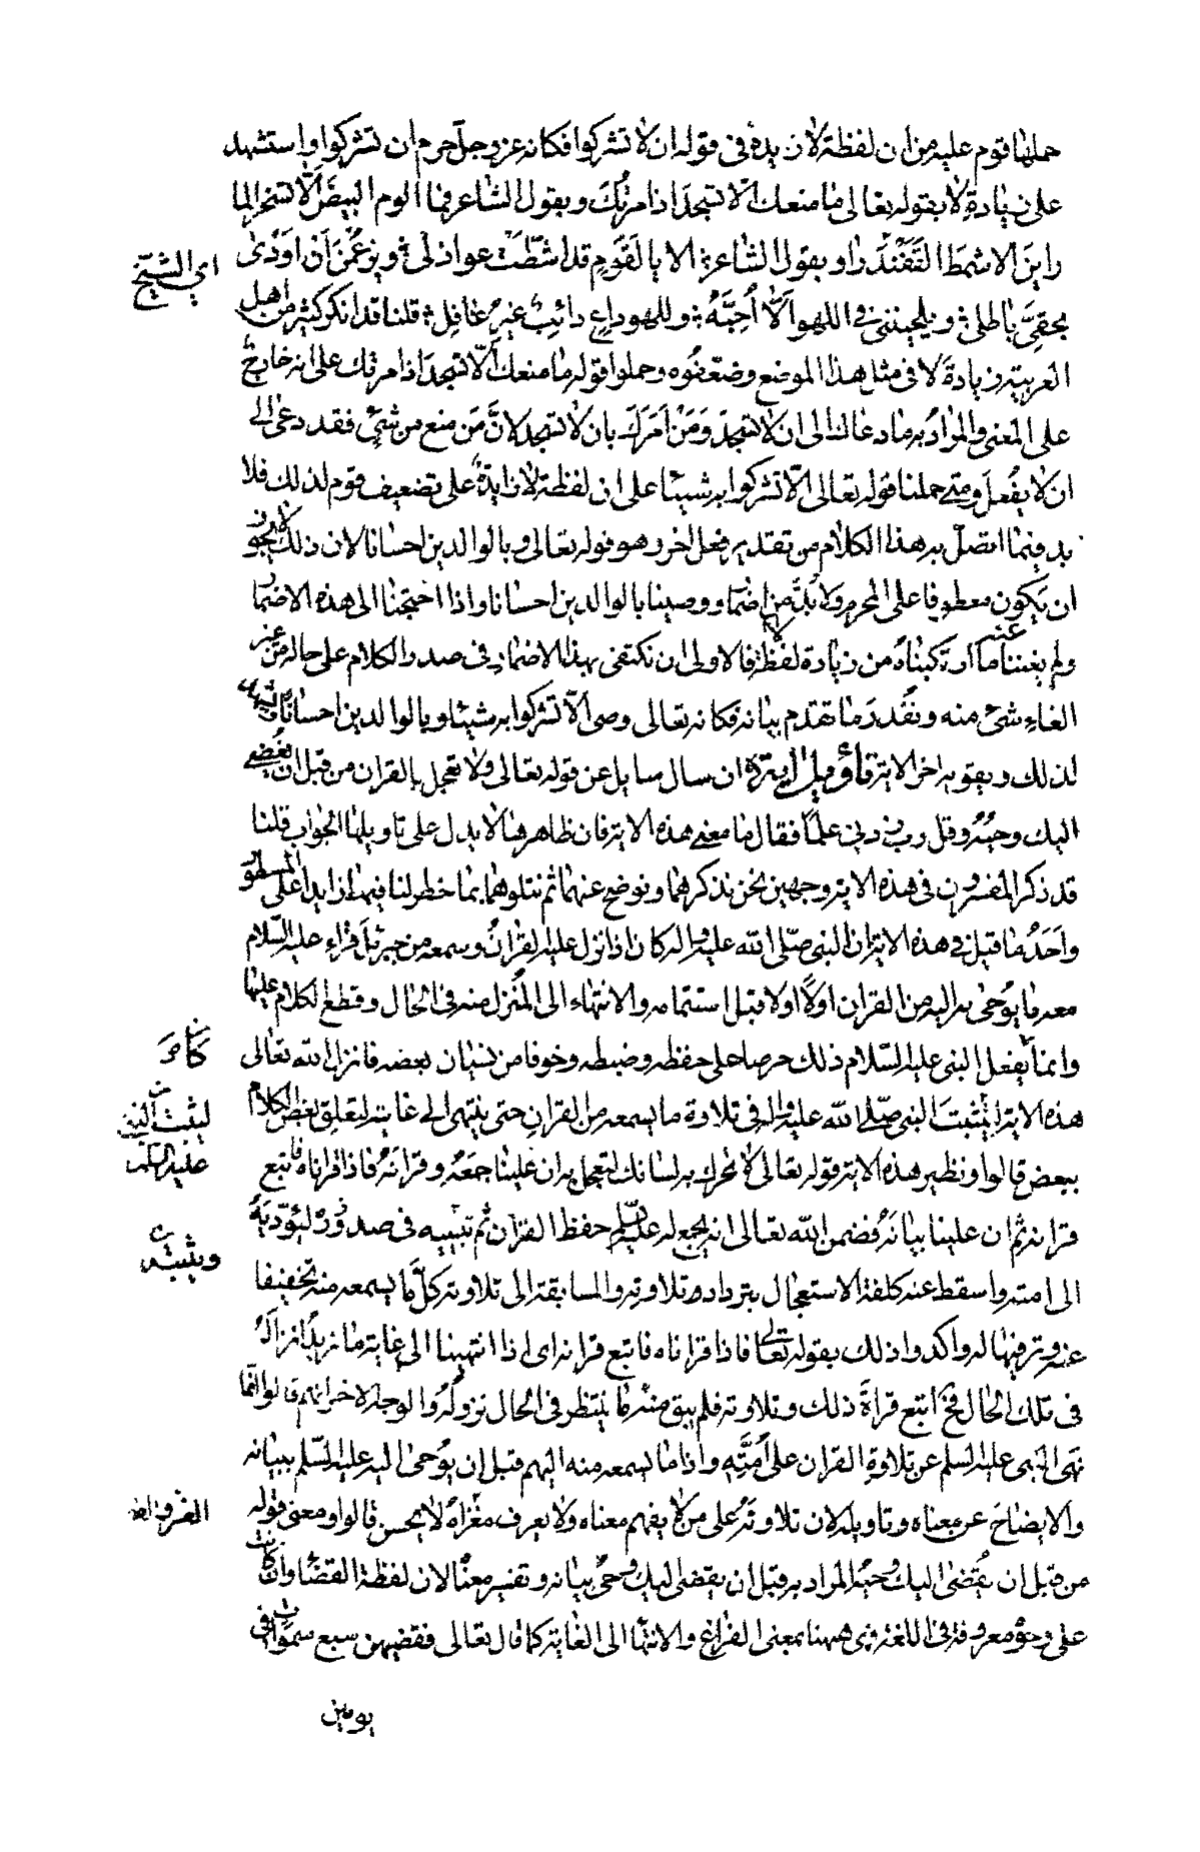 حملها قوم عليه من ان لفظة لا زايدة في قوله ان لا تشركوا فكانه عز وجل حرم ان تشركوا واستشهد
على زيادة لا بقوله تعالى ما منعك الا تسجد اذ امرتك وبقول الشاعر فما الوم البيض الا تسخرا لما
راين الاشمط القفندرا وبقول الشاعر الا يا لقوم قد اشطت عواذلي ويزعمن ان اودى
بحقي باطلي ويلحينني في اللهو الا احبه وللهو داع دائب غير غافل قلنا قد انكر كثير من اهل
اي الشيخ
العربية زيادة لا في مثل هذا الموضع وضعفوه وحملوا قوله ما منعك الا تسجد اذ امرتك على انه خارج
على المعنى والمراد به ما دعاك الى ان لا تسجد ومن امرك بان لا تسجد لان من منع من شيء فقد دعى الى
ان لا يفعل ومتى حملنا قوله تعالى الا تشركوا به شيئا على ان لفظة لا زايدة على تضعيف قوم لذلك فلا
بد فيما اتصل به هذا الكلام من تقدير فعل اخر وهو قوله تعالى وبالوالدين احسانا لان ذلك لا يجوز
ان يكون معطوفا على المحرم ولا بد من اضمار ووصينا بالوالدين احسانا واذا احتجنا الى هذه الاضمار
ولم يغننا عنه ما ارتكبناه من زيادة لفظة لا فالاولى ان نكتفي بهذا الاضمار في صدر الكلام على حاله من غير
الغاء شيء منه ونقدر ما تقدم بيانه فكانه تعالى وصى الا تشركوا به شيئا وبالوالدين احسانا ويشهد
لذلك ويقويه اخر الاية تاويل اية ان سال سايل عن قوله تعالى ولا تعجل بالقران من قبل ان يقضى
اليك وحيه وقل رب زدني علما فقال ما معنى هذه الاية فان ظاهرها لا يدل على تاويلها الجواب قلنا
قد ذكر المفسرون في هذه الاية وجهين نحن نذكرهما ونوضح عنهما ثم نتلوهما بما خطر لنا فيها زايدا على المسطور
واحدهما قيل في هذه الاية ان النبي صلى الله عليه واله كان اذا نزل عليه القران وسمعه من جبرئيل قراء عليه السلام
معه ما يوحى به اليه من القران اولا اولا قبل استتمامه والانتهاء الى المنزل منه في الحال وقطع الكلام عليها
وانما يفعل النبي عليه السلام ذلك حرصا على حفظه وضبطه وخوفا من نسيان بعضه فانزل الله تعالى
هذه الاية ليثبت النبي صلى الله عليه واله في تلاوة ما يسمعه من القران حتى ينتهي الى غايته لتعلق بعض الكلام
ليثبت النبي
عليه السلم
ببعض قالوا ونظير هذه الاية قوله تعالى لا تحرك به لسانك لتعجل به ان علينا جمعه وقرانه فاذا قراناه فاتبع
قرانه ثم ان علينا بيانه فضمن الله تعالى انه يجمع له عليه السلم حفظ القران ثم تبيينه في صدره ليؤديه
ويثبته
الى امته واسقط عنه كلفة الاستعجال بترداد تلاوته والمسابقة الى تلاوته كل ما يسمعه منه تخفيفا
عنه وترفيها له واكد واذلك بقوله تعالى فاذا قراناه فاتبع قرانه اى اذا انتهينا الى غاية ما نريد انزاله
في تلك الحال فح اتبع قراءة ذلك وتلاوته فلم يبق منه ما ينتظر في الحال نزوله والوجه الاخر انهم قالوا انما
نهى النبي عليه السلم عن تلاوة القران على امته واذا ما يسمعه منه اليهم قبل ان يوحى اليه عليه السلم ببيانه
والايضاح عن معناه وتاويله لان تلاوته على من لا يفهم معناه ولا يعرف مغزاه لا يحسن قالوا ومعنى قوله
من قبل ان يقضى اليك وحيه المراد به قبل ان يقضى اليك وحي بيانه وتفسير معناه لان لفظة القضاء وان كانت
على وجوه معروفة في اللغة فهي ههنا بمعنى الفراغ والانتهاء الى الغاية كما قال تعالى فقضيهن سبع سموات في
يومين